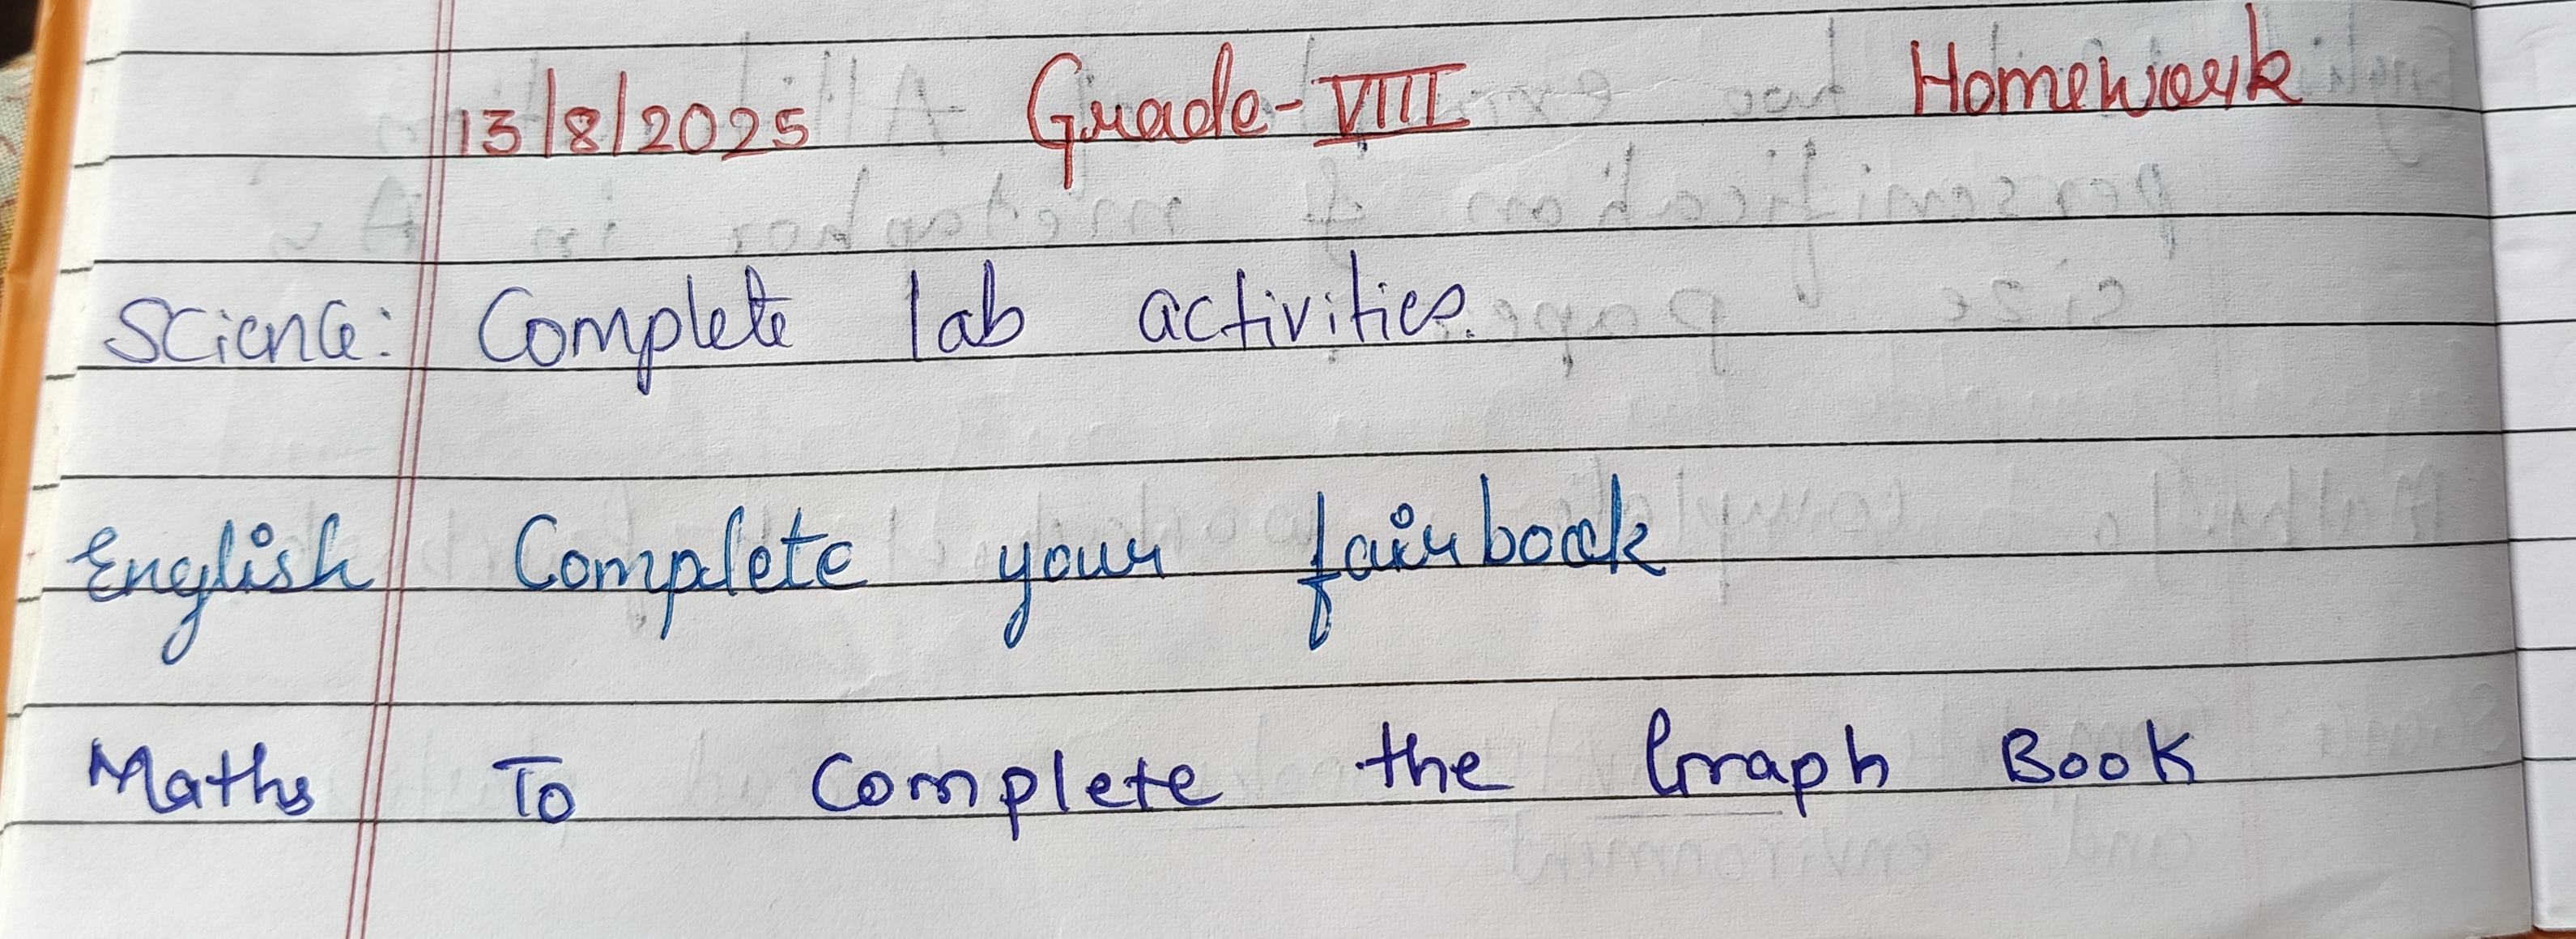 13/8/2025 Grade-VIII Homework
Science: Complete lab activities.
English Complete your fairbook
Maths To complete the Graph Book